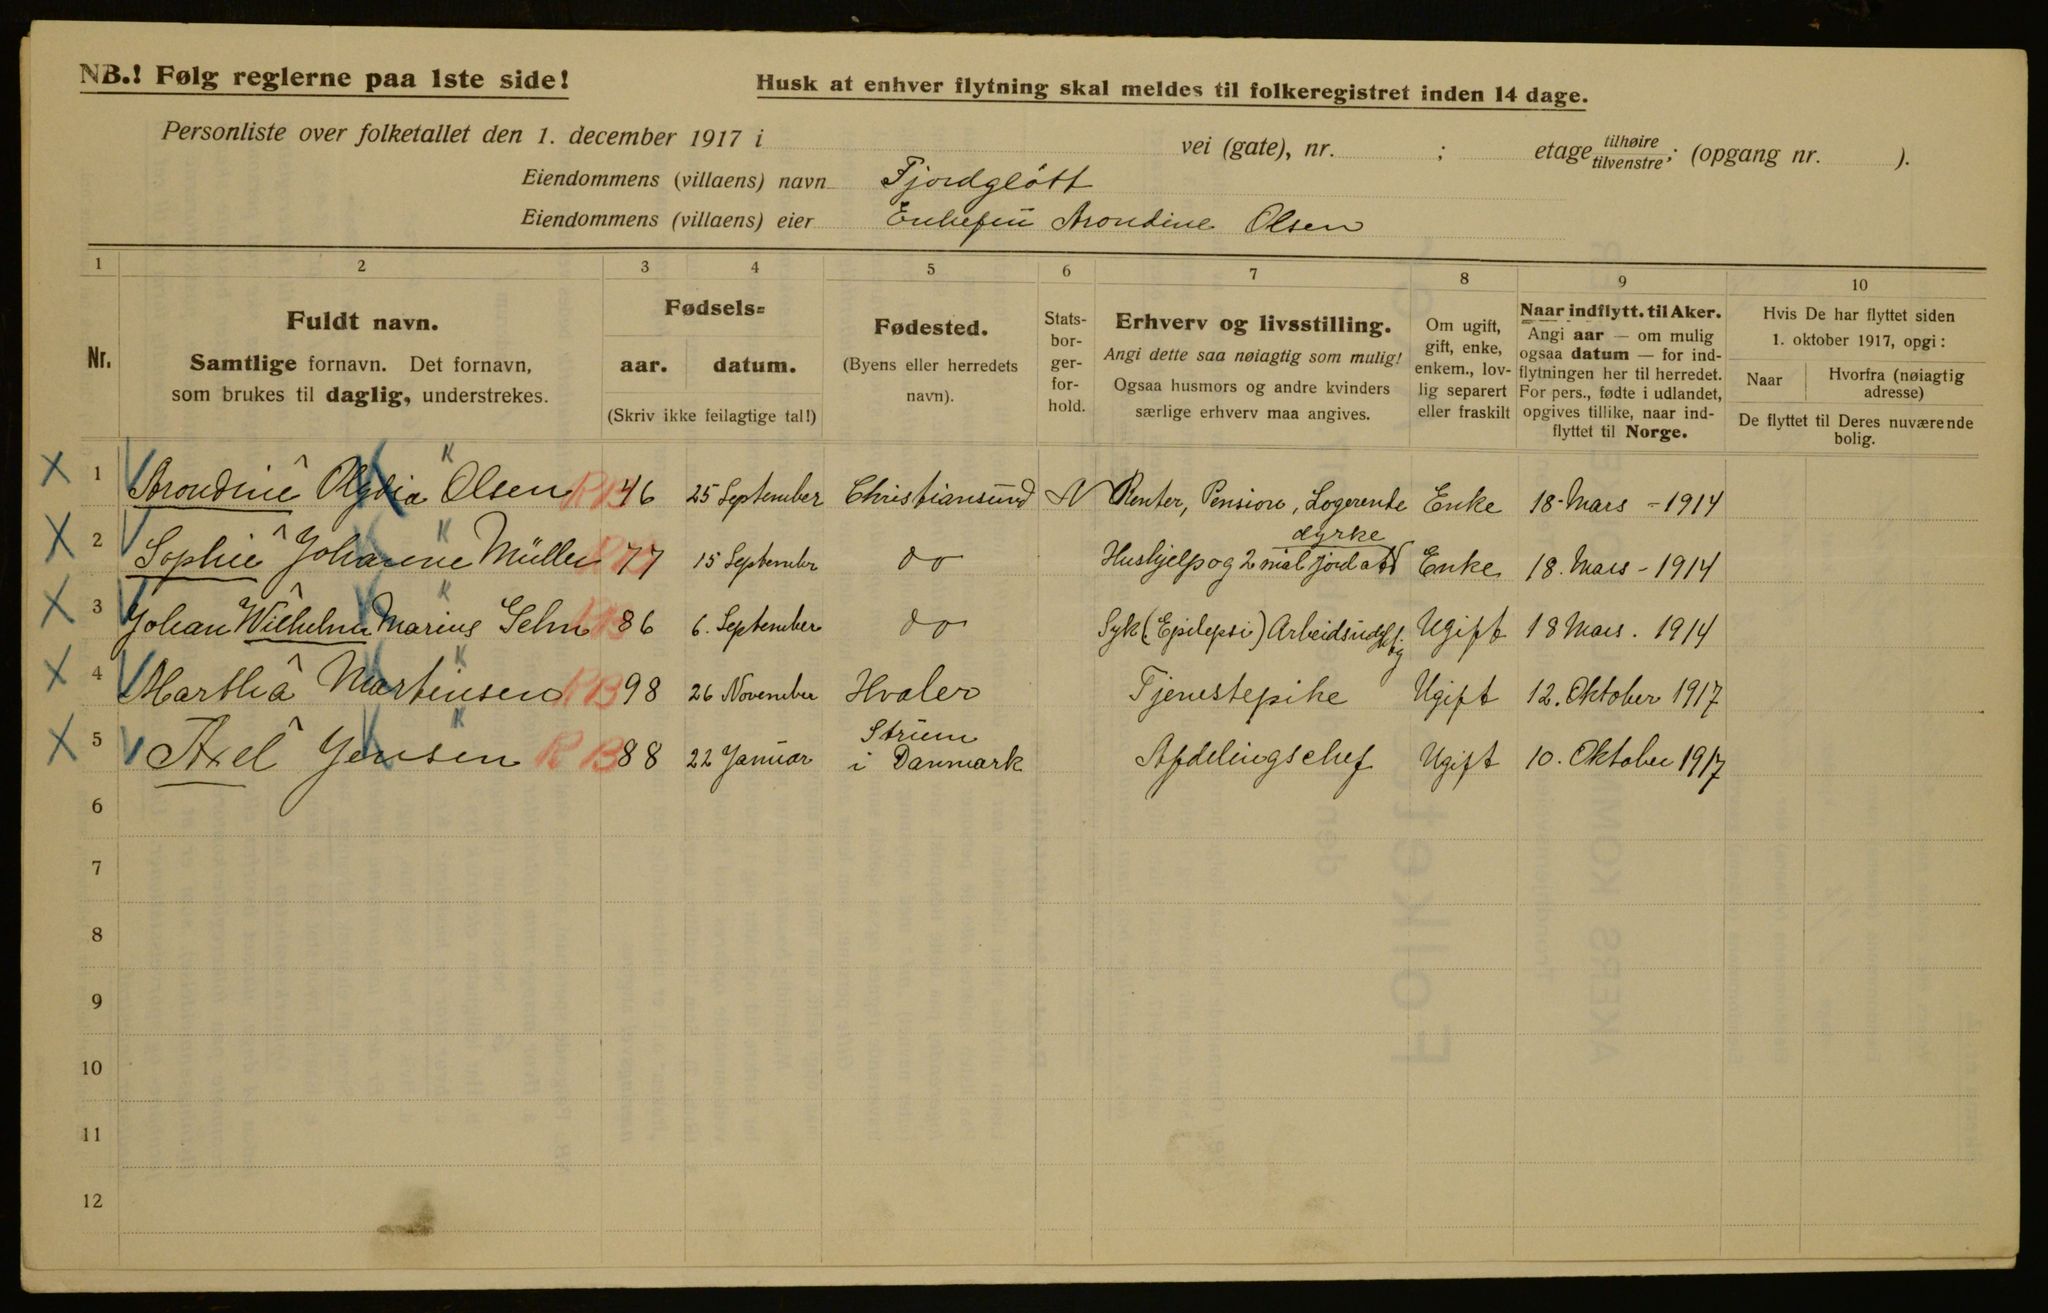 NB.! Følg reglerne paa 1ste side!
Husk at enhver flytning skal meldes til folkeregistret inden 14 dage.
Personliste over folketallet den 1. december 1917 i vei (gate), nr. ; etage tilhøire tilvenstre; (opgang nr. ).
Eiendommens (villaens) navn Fjordgløtt
Eiendommens (villaens) eier Enkefru Arondine Olsen
1 2 3 4 5 6 7 8 9 10
Nr.
Fuldt navn.
Samtlige fornavn. Det fornavn,
som brukes til daglig, understrekes.
Fødsels=
aar. datum.
(Skriv ikke feilagtige tal!)
Fødested.
(Byens eller herredets
navn).
Stats-
bor-
ger-
for-
hold.
Erhverv og livsstilling.
Angi dette saa nøiagtig som mulig!
Ogsaa husmors og andre kvinders
særlige erhverv maa angives.
Om ugift,
gift, enke,
enkem., lov-
lig separert
eller fraskilt
Naar indflytt. til Aker.
Angi aar — om mulig
ogsaa datum — for ind-
flytningen her til herredet.
For pers., fødte i udlandet,
opgives tillike, naar ind-
flyttet til Norge.
Hvis De har flyttet siden
1. oktober 1917, opgi:
Naar
Hvorfra (nøiagtig
adresse)
De flyttet til Deres nuværende
bolig.
X 1 Arondine Olsen RB 46 25 September Christiansund N Renter, Pension, Logerende Enke 18 Mars - 1914
dyrke
X 2 Sophie Johanne Müller RB 77 15 September do Hushjelp og 2 mål jord Enke 18. Mars - 1914
X 3 Johan Wilhelm Marius RB 86 6. September do Syk (Epilepsi) Ugift 18 Mars. 1914
X 4 Martha Martinsen RB 98 26 November Hvaler Tjenestepike Ugift 12. Oktober 1917
X 5 Axel Jensen RB 88 22 Januar i Danmark Afdelingschef Ugift 10. Oktober 1917
6
7
8
9
10
11
12